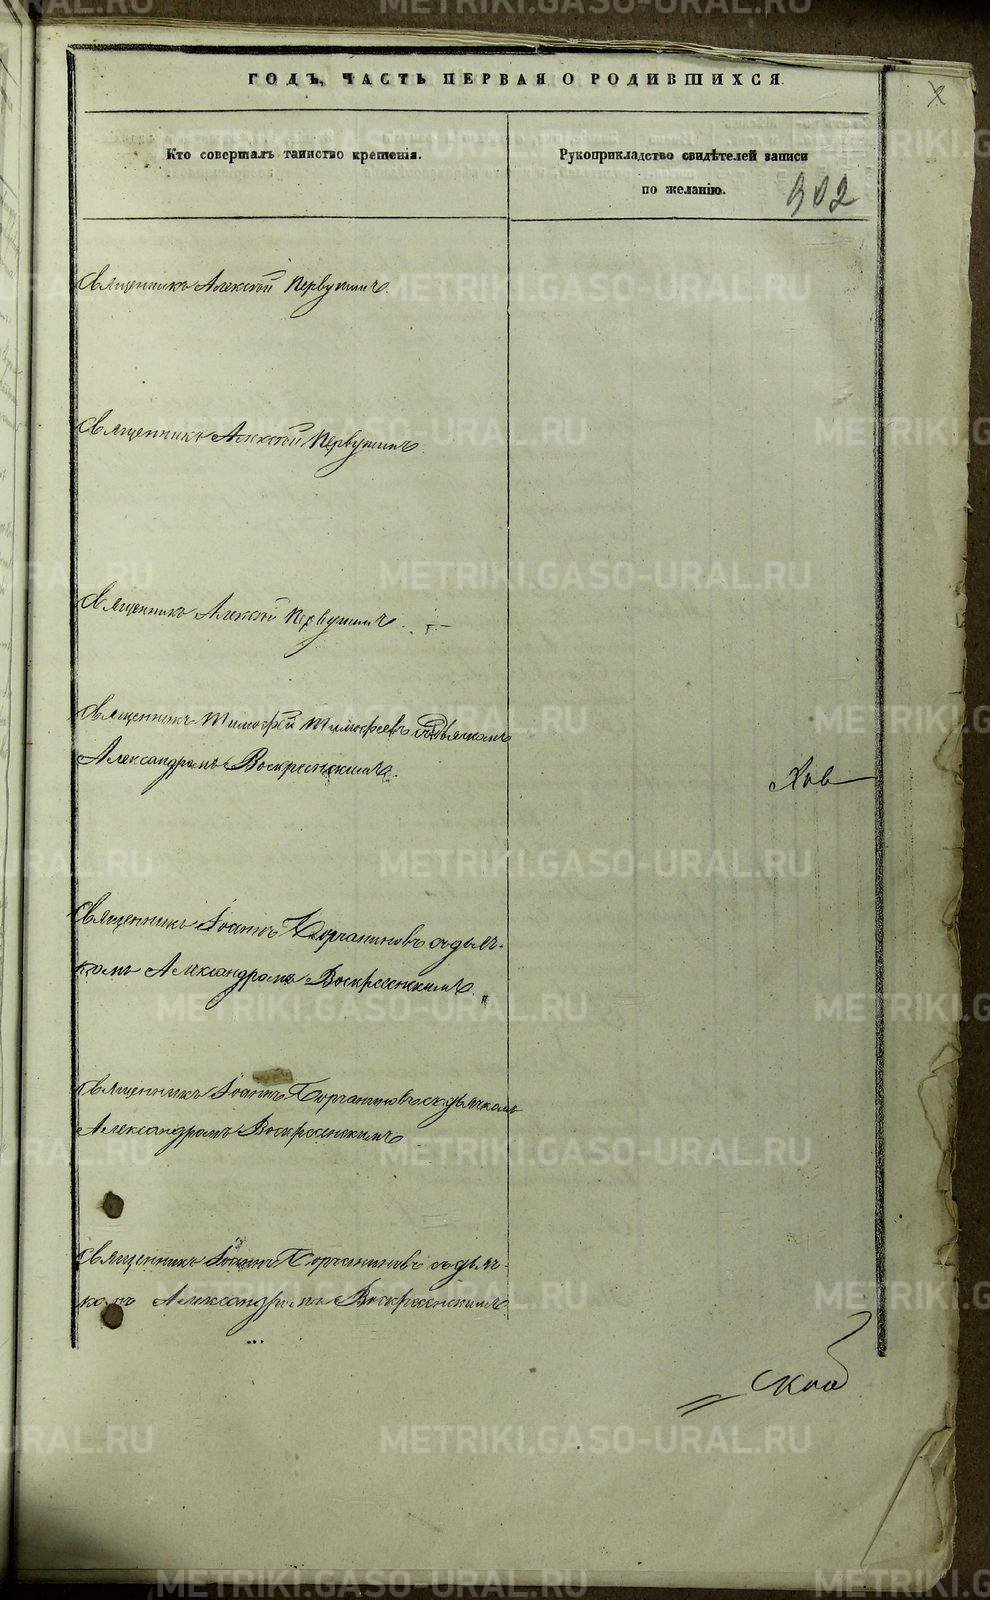 ГОДЪ, ЧАСТЬ ПЕРВАЯ О РОДИВШИХСЯ.
Кто совершалъ таинство крещенія.
Рукоприкладство свидѣтелей записи
по желанію.
302
Священникъ Алексѣй Первушинъ.
Священникъ Алексѣй Первушинъ.
Священникъ Алексѣй Первушинъ.
Священникъ Тимофей Тимофеевъ съ дьячкомъ
Александромъ Воскресенскимъ.
Священникъ Іоаннъ Корчагиновъ съ дьяч-
комъ Александромъ Воскресенскимъ.
Священникъ Іоаннъ Корчагиновъ съ дьячкомъ
Александромъ Воскресенскимъ
Священникъ Іоаннъ Корчагиновъ съ дьяч-
комъ Александромъ Воскресенскимъ
METRIKI.GASO-URAL.RU